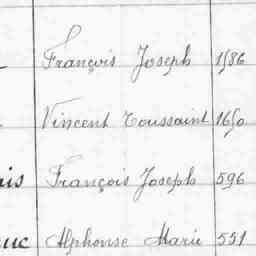 François Joseph 1586
Vincent Toussaint 1650
ais François Joseph 596
uc Alphonse Marie 551